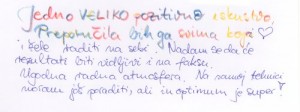 Jedno VELIKO pozitivno iskustvo.
Preporučila bih ga svima koji
i žele raditi na sebi. Nadam se da će
rezultati biti vidljivi i na faksu.
Ugodna radna atmosfera. Na samoj tehnici
moram još poraditi, ali in optimum je super!